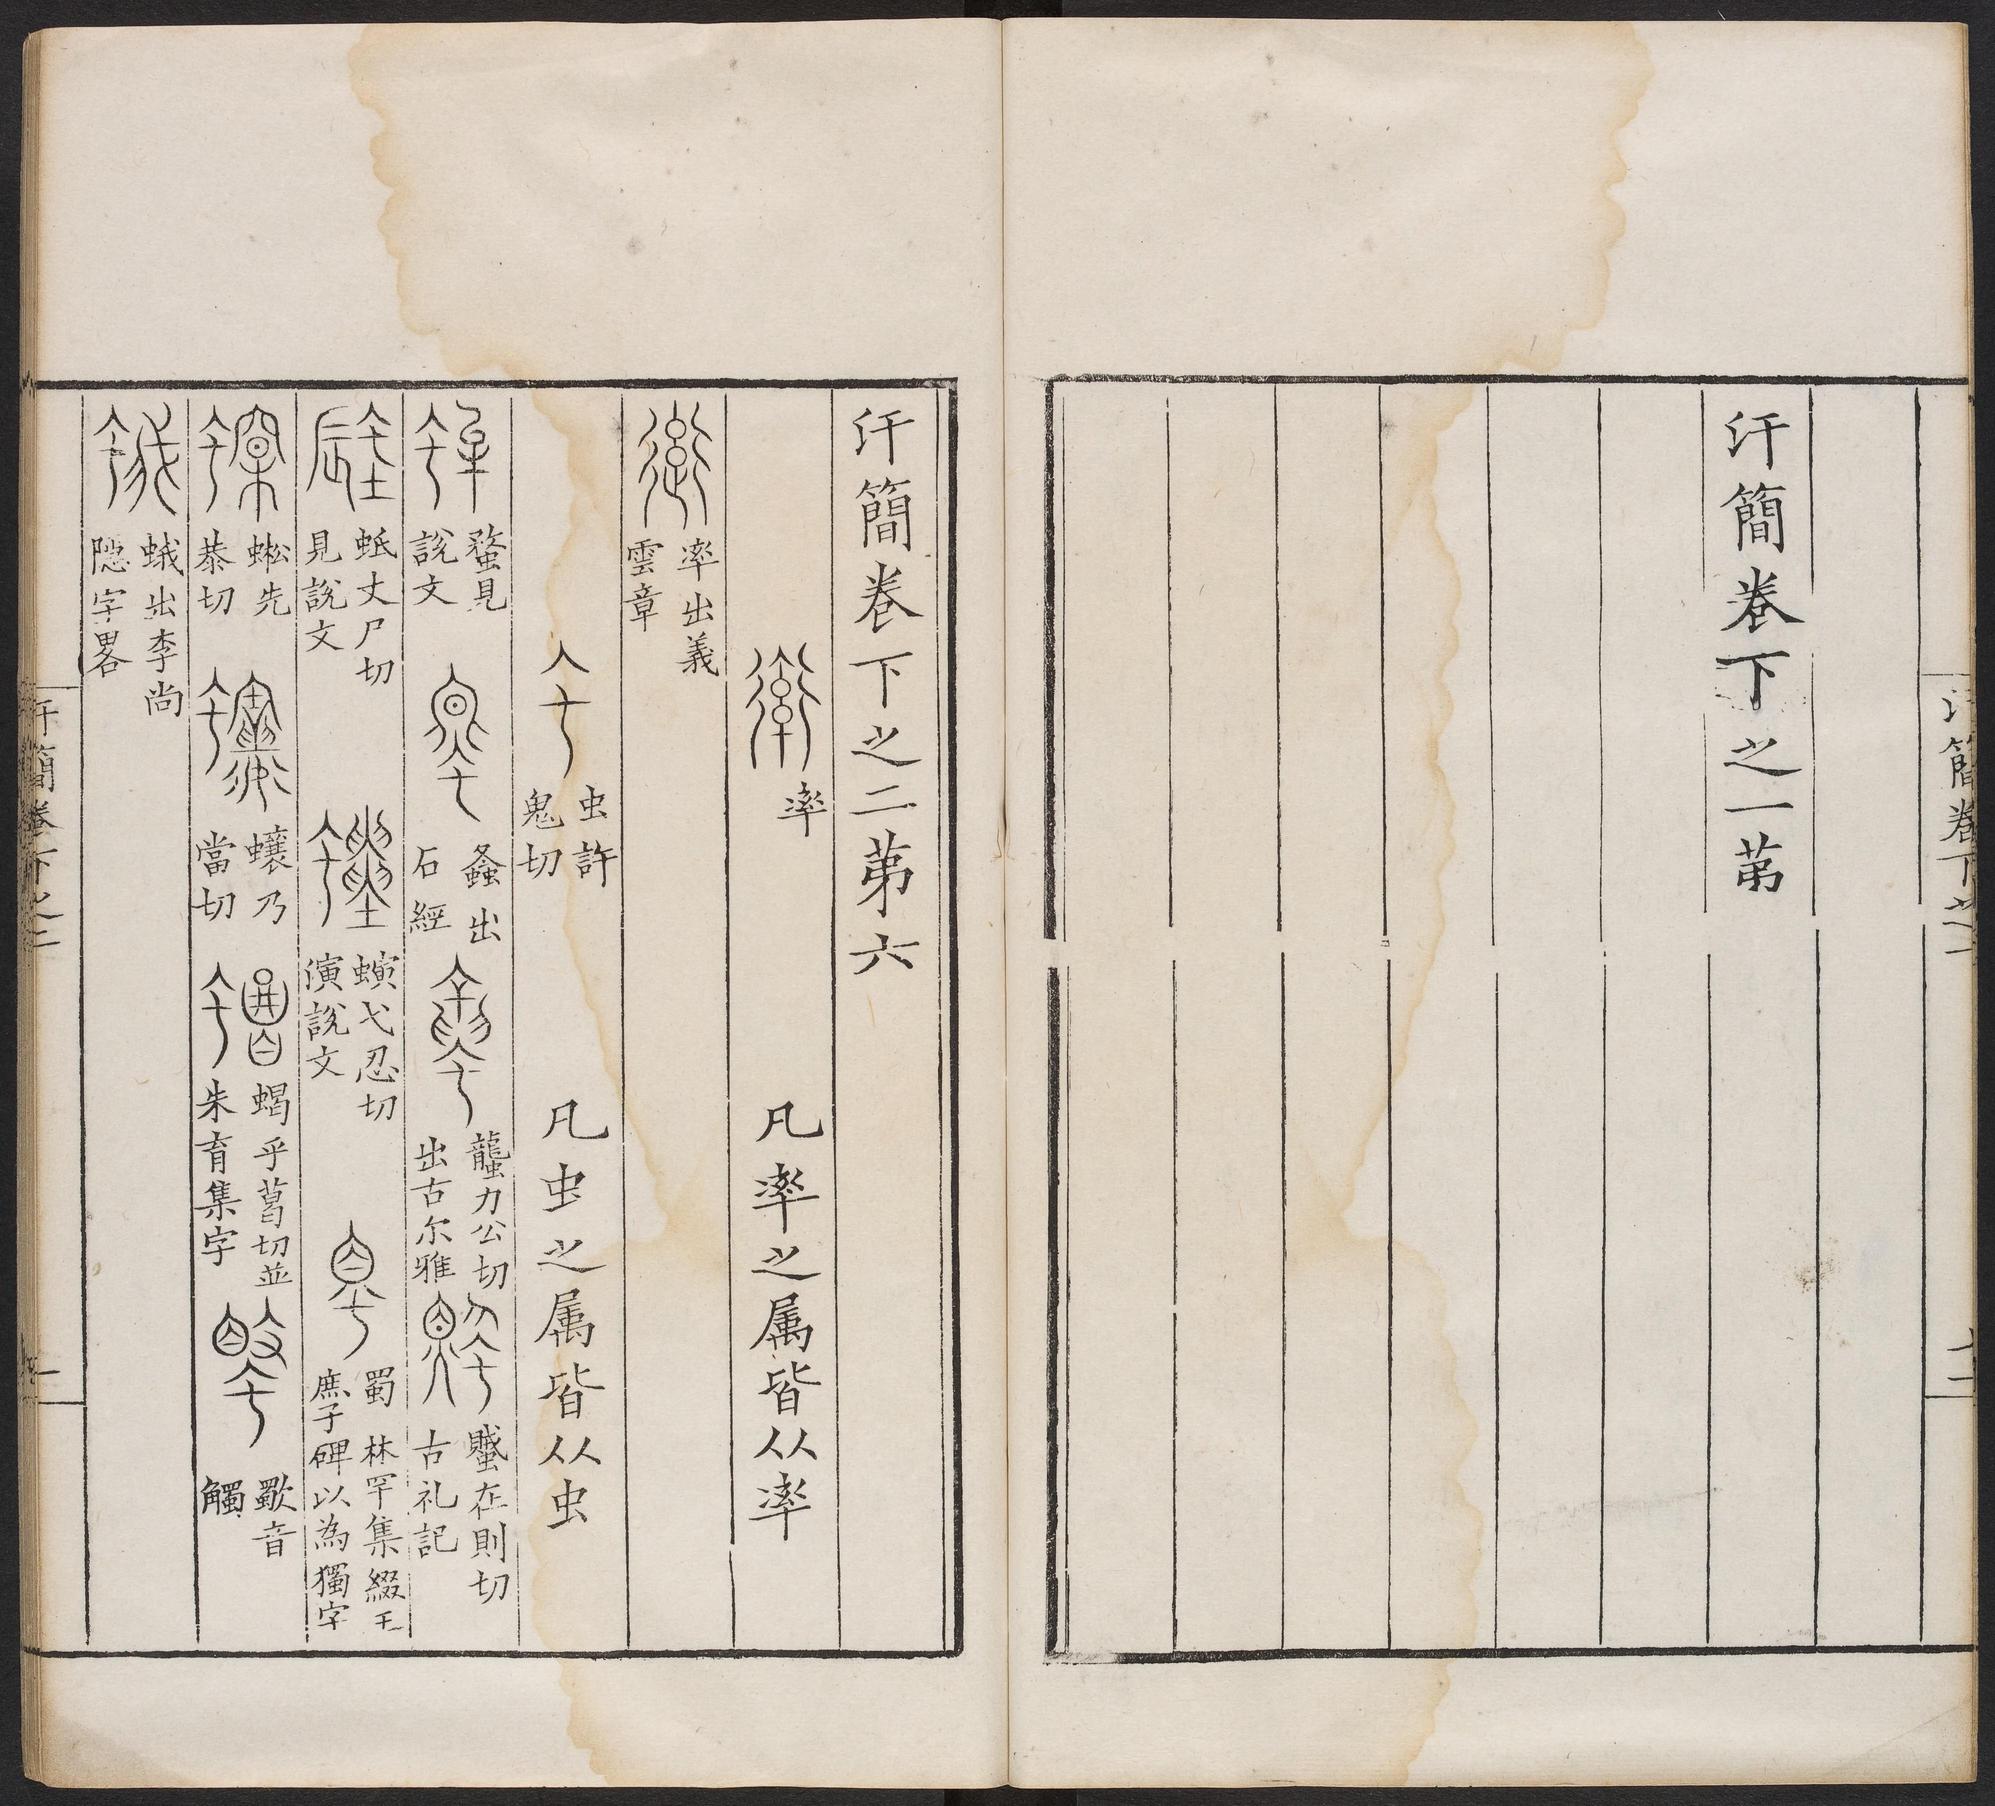 汗簡卷下之一
十二
汗簡卷下之一第
汗簡卷下之二第六
率 凡率之属皆从率
率出義雲章
虫許鬼切 凡虫之属皆从虫
蝥見說文 螽出石經 蠪力公切出古尔雅 蠈在則切古礼記
蚳丈尸切見說文 螾弋忍切演說文 蜀林罕集綴王庶子碑以為獨字
蜙先恭切 蠰乃當切 蝎乎葛切並朱育集字 歜音觸
蛾出李尚隠字畧
汗簡卷下之二
一